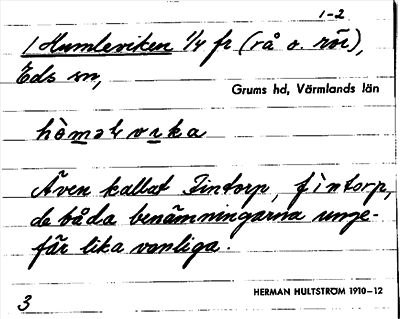 1-2
1 Humleviken 1/4 fr (rå o. rör),
Eds sn,
Grums hd, Värmlands län
Även kallat Fintorp, fìntorp,
de båda benämningarna unge-
fär lika vanliga.
HERMAN HULTSTRÖM 1910–12
3